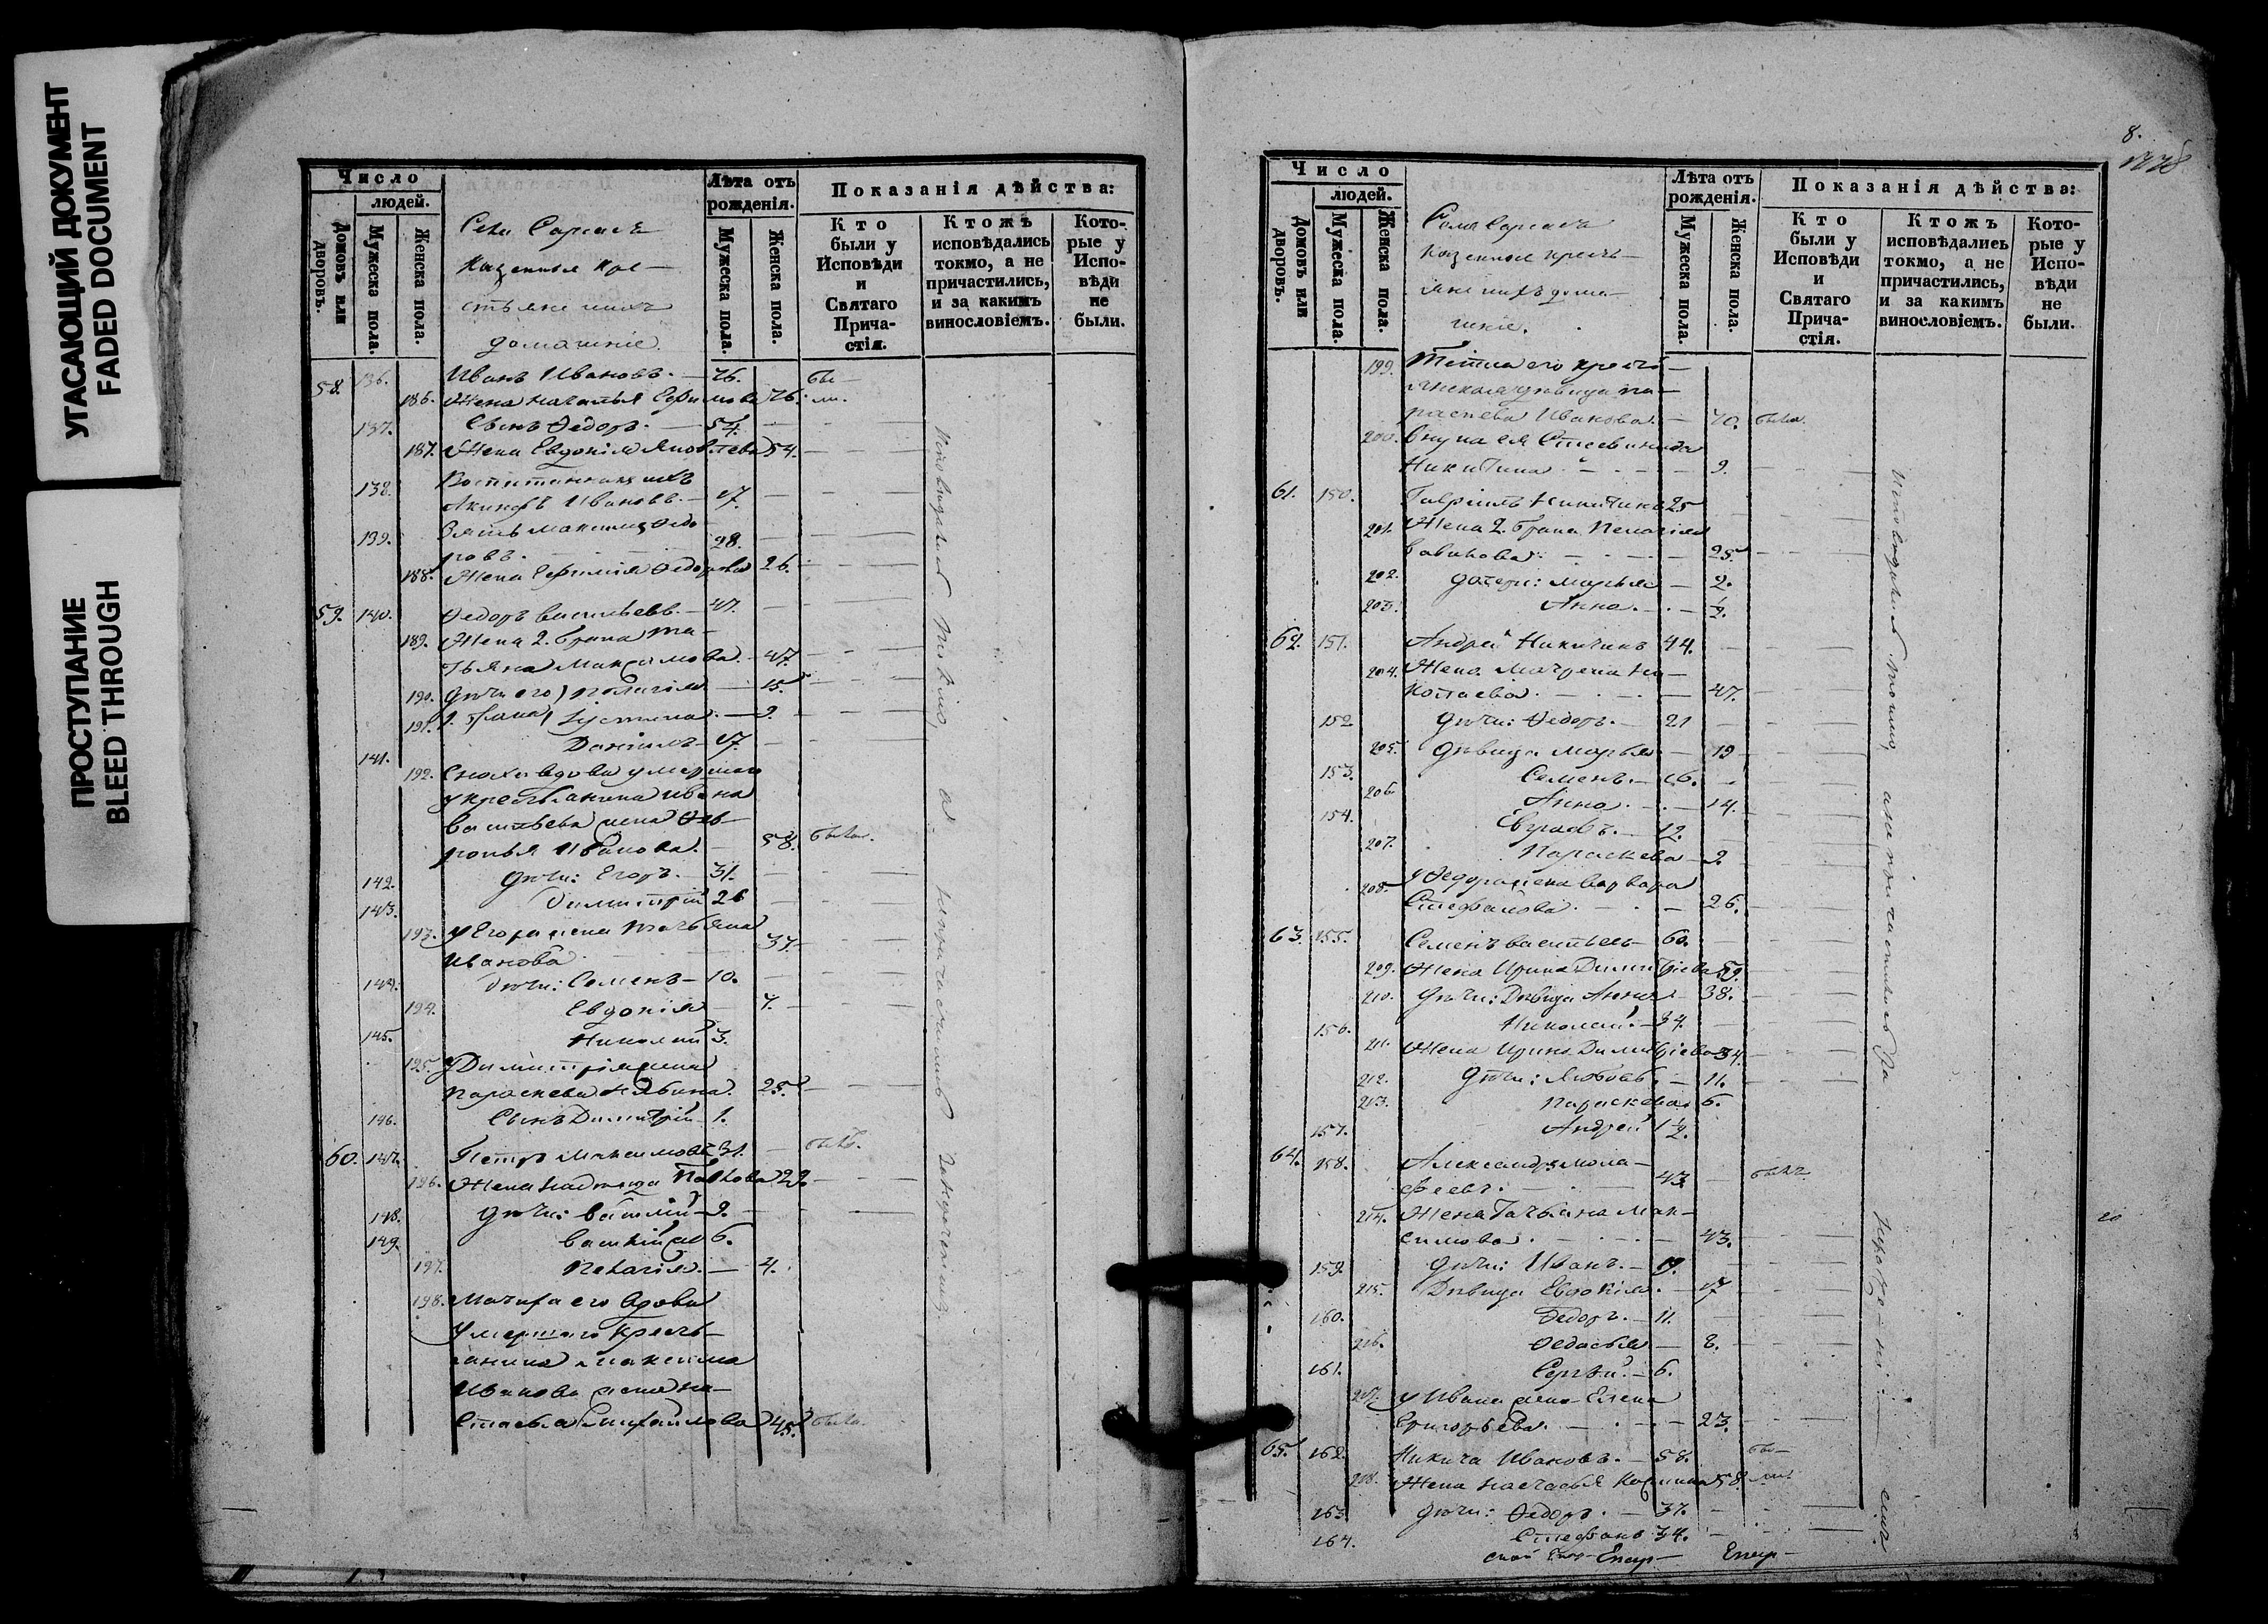 УГАСАЮЩИЙ ДОКУМЕНТ
FADED DOCUMENT
ПРОСТУПАНИЕ
BLEED THROUGH
Число
людей.
Домовъ или дворовъ.
Мужеска пола.
Женска пола.
домашніе.
Лѣта отъ рожденія.
Мужеска пола.
Женска пола.
Показанія дѣйства:
Кто были у Исповѣди и Святаго Прича-
стія.
Ктожъ исповѣдались токмо, а не причастились, и за какимъ винословіемъ.
Кото-
рые у Испо-
вѣди не были.
58. 136. Иванъ Ивановъ. — 76. бы-
186. Жена Наталья Ефимова 76. ли.
137. Сынъ Ѳедоръ. — 54.
187. Жена Евдокія Яковлева 54.
138. Воспитанникъ ихъ
Ивановъ. — 17.
139. Зять Максимъ Ѳедо-
ровъ. 28.
188. Жена Ефимія Ѳедорова 26.
59. 140. Ѳедоръ Васильевъ. — 47.
189. Жена 2. брака Та-
тьяна Максимова. — 47.
190. Дѣти его Пелагія — 15.
191. 1. брака Іустина. — 9.
141. Даніилъ — 17.
192. Сноха вдова умершаго
крестьянина Ивана
Васильева жена Ѳев-
ронья Иванова. — 58. была.
142. Дѣти: Егоръ. — 31.
143. Димитрій 26
193. У Егора жена Татьяна
Иванова. 37.
144. Дѣти: Семенъ — 10.
194. Евдокія — 7.
145. Николай 3.
195. У Димитрія жена
Параскева 25.
146. Сынъ Димитрій 1.
60. 147. Петръ Максимовъ 31. былъ.
196. Жена Надежда Павлова 29.
148. Дѣти: Василій — 9.
149. Василій 6.
197. Пелагія. — 4.
198. Матерь его вдова
умершаго кресть-
янина Максима
Иванова жена На-
стасья Михайлова 45. была.
Исповѣдались токмо, а непричастились
8.
Число
людей.
Домовъ или дворовъ.
Мужеска пола.
Женска пола.
Лѣта отъ рожденія.
Мужеска пола.
Женска пола.
Показанія дѣйства:
Кто были у Исповѣди и Святаго Прича-
стія.
Ктожъ исповѣдались токмо, а не причастились, и за какимъ винословіемъ.
Кото-
рые у Испо-
вѣди не были.
199. Тетка его кресть-
янская дѣвица Па-
раскева Иванова. — 70. была.
200. Внука ея
Никитина — 9.
61. 150. Гавріилъ Никитинъ 25
201. Жена 2. брака Пелагія
Савинова. — 25.
202. Дочери: Марья — 2.
203. Анна. — ½.
62. 151. Андрей Никитинъ 44.
204. Жена Матрена Ни-
колаева. — 47.
152 Дѣти: Ѳедоръ. — 21
205. Дѣвица Марья — 19
153. Семенъ. — 16.
206. Анна. — 14.
154. Евграфъ. — 12.
207. Параскева — 9.
208. У Ѳедора жена Варвара
Стефанова. — 26.
63. 155. Семенъ Васильевъ — 60.
209. Жена Ирина Димитріева 59.
210. Дѣти: Дѣвица Анна — 38.
156. Николай. — 34.
211. Жена Ирина Димитріева 34.
212. Дѣти: Любовь. — 11.
213. Параскева 6.
157. Андрей 1½.
64. 158. Александръ Мала-
феевъ. — 43. былъ.
214. Жена Татьяна Мак-
симова. — 43.
159. Дѣти: Иванъ. — 19.
215. Дѣвица Евдокія. — 17
160. Ѳедоръ. — 11.
216. Ѳедосья — 8.
161. Сергѣй. — 6.
217. У Ивана жена Елена
Григорьева. — 23.
65. 162. Никита Ивановъ. — 58. бы-
218. Жена Настасья Козмина 58. ли.
163 Дѣти: Ѳедоръ. — 37.
164. Стефанъ 34.
Исповѣдались токмо, а не причастились
20